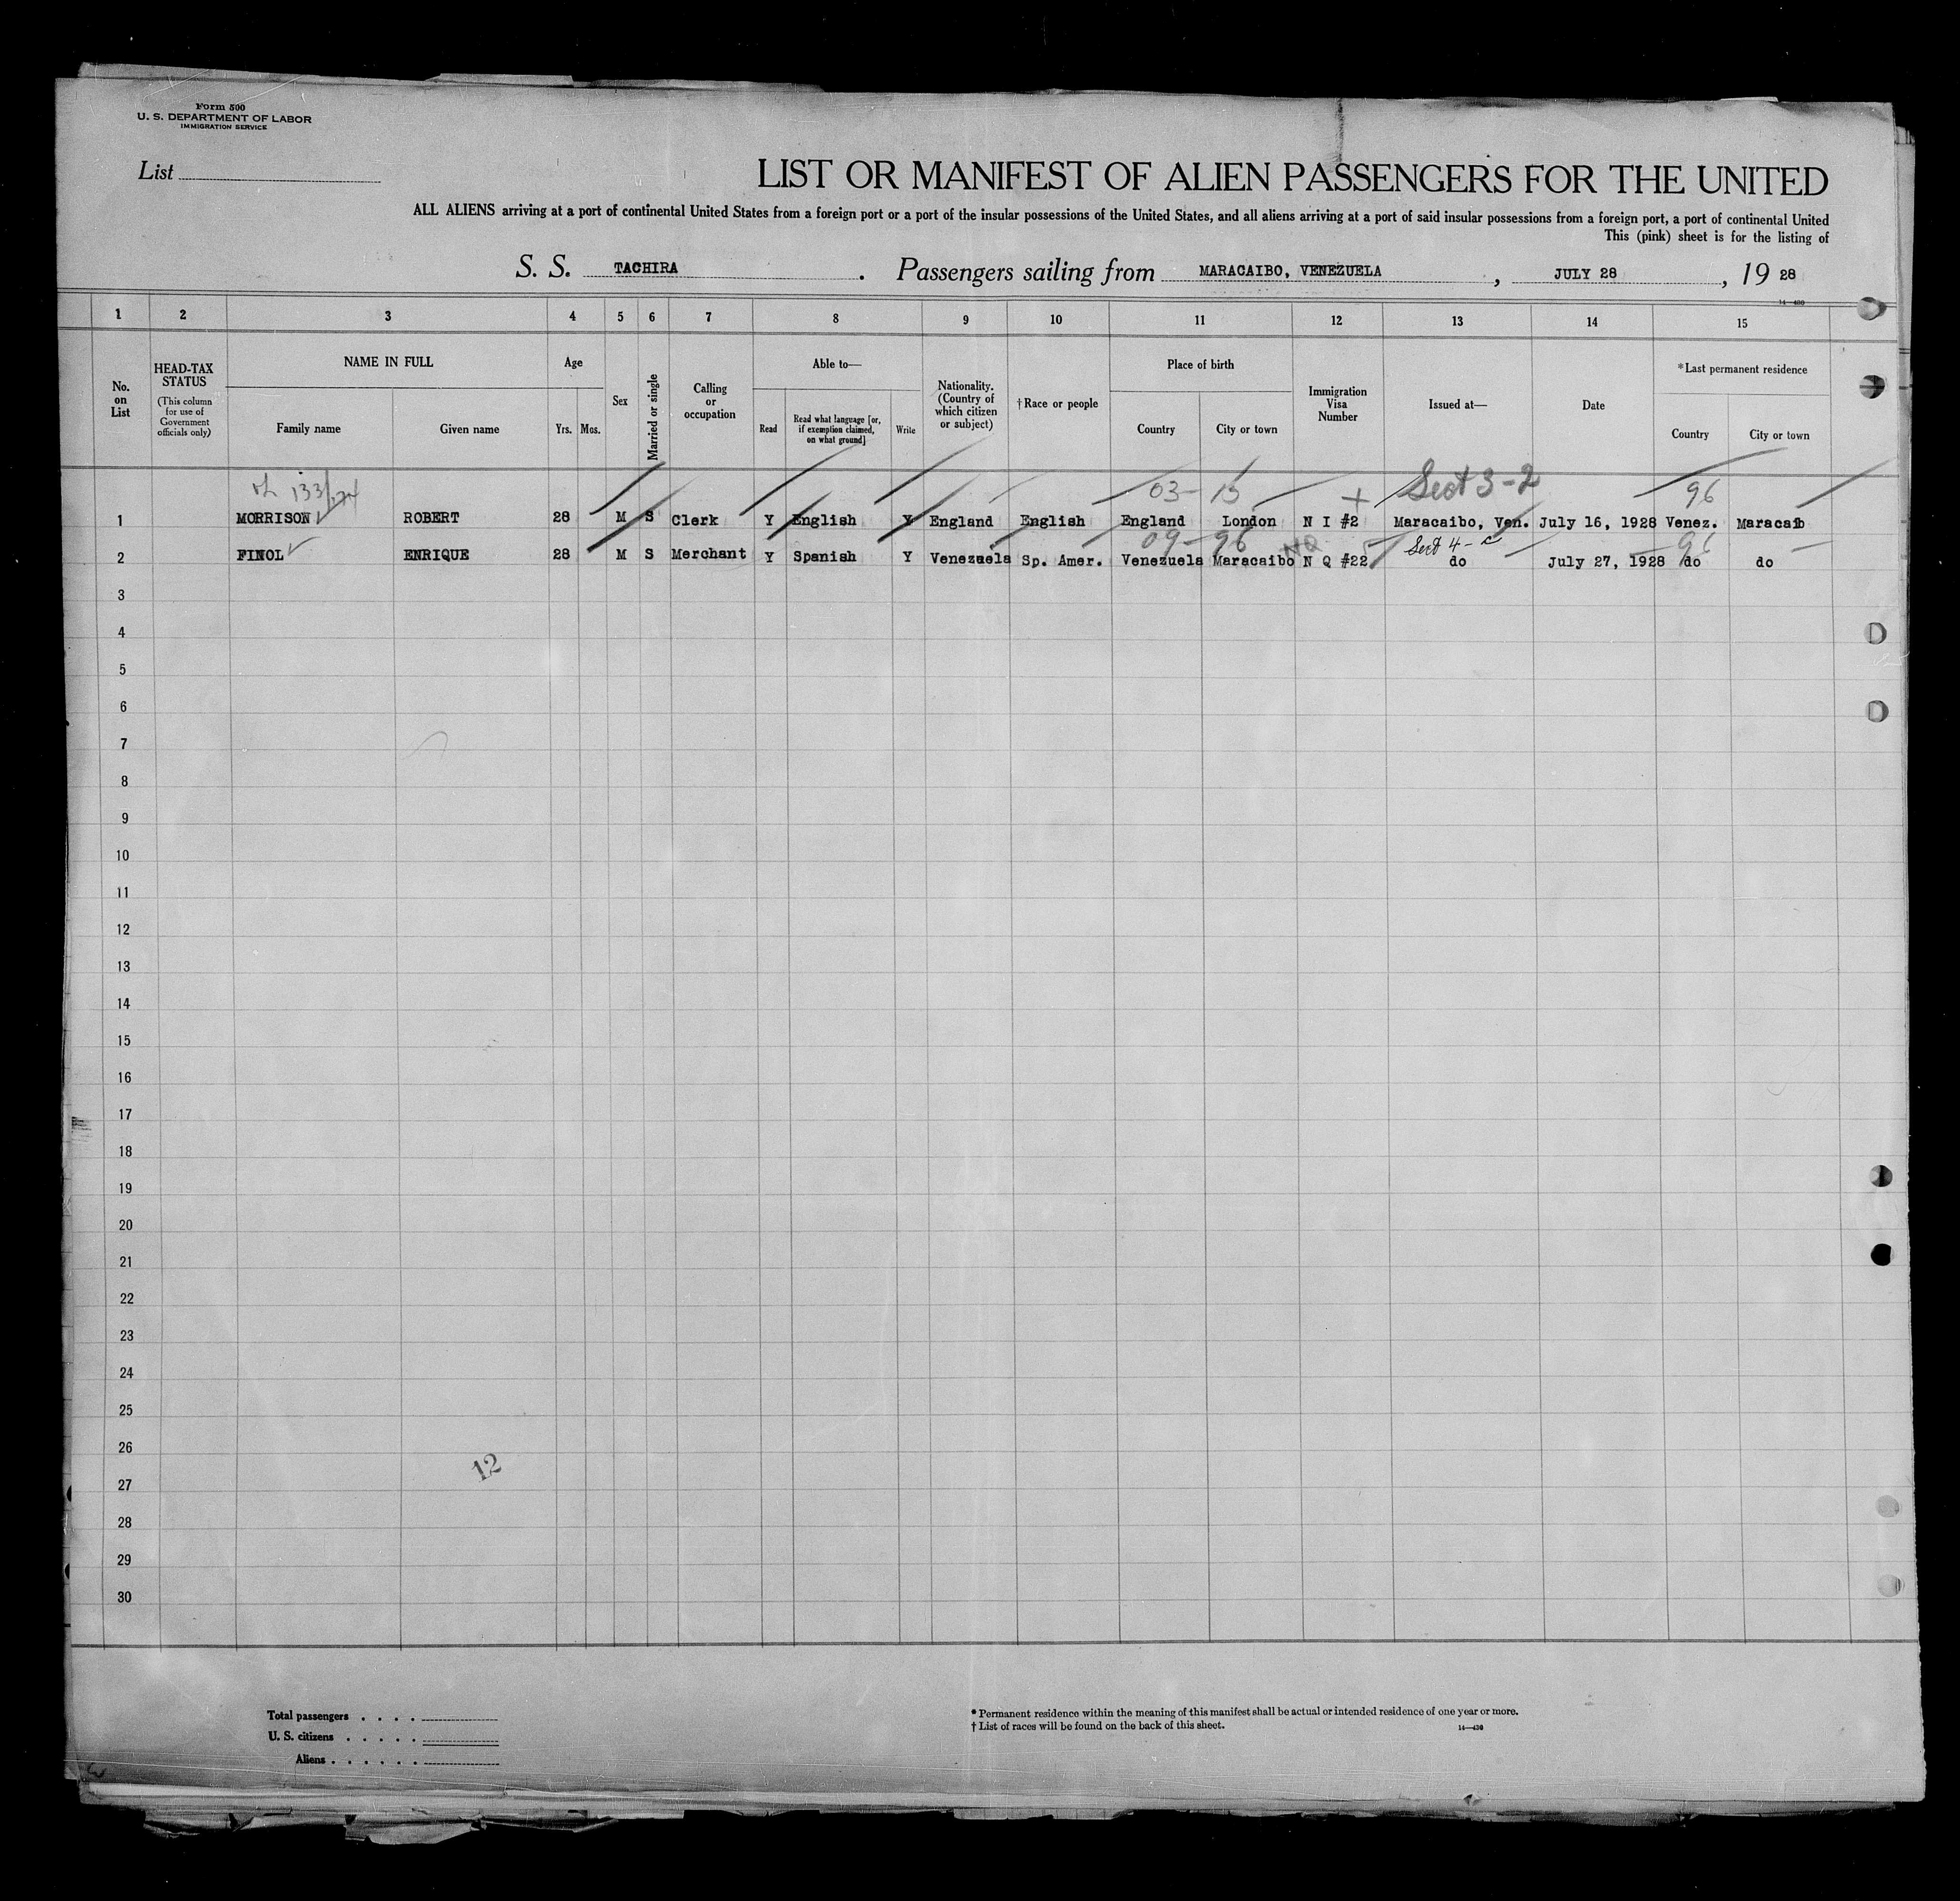 Form 500
U. S. DEPARTMENT OF LABOR
IMMIGRATION SERVICE
List
LIST OR MANIFEST OF ALIEN PASSENGERS FOR THE UNITED
ALL ALIENS arriving at a port of continental United States from a foreign port or a port of the insular possessions of the United States, and all aliens arriving at a port of said insular possessions from a foreign port, a port of continental United
This (pink) sheet is for the listing of
S. S. TACHIRA . Passengers sailing from MARACAIBO, VENEZUELA , JULY 28 , 19 28
14—430
1 2 3 4 5 6 7 8 9 10 11 12 13 14 15
No. on List
HEAD-TAX STATUS
(This column for use of Government officials only)
NAME IN FULL
Family name
Given name
Age
Yrs. Mos.
Sex
Married or single
Calling or occupation
Able to—
Read
Read what language [or, if exemption claimed, on what ground]
Write
Nationality. (Country of which citizen or subject)
†Race or people
Place of birth
Country
City or town
Immigration Visa Number
Issued at—
Date
*Last permanent residence
Country
City or town
133/ 03- 15 + Sect 3-2 96
1 MORRISON ROBERT 28 M S Clerk Y English Y England English England London N I #2 Maracaibo, Ven. July 16, 1928 Venez. Maracaib
09-96 NQ Sect 4-c 96
2 FINOL ENRIQUE 28 M S Merchant Y Spanish Y Venezuela Sp. Amer. Venezuela Maracaibo N Q #22 do July 27, 1928 do do
3
4
5
6
7
8
9
10
11
12
13
14
15
16
17
18
19
20
21
22
23
24
25
26
12
27
28
29
30
Total passengers . . . .
U. S. citizens . . . . .
Aliens . . . . . .
* Permanent residence within the meaning of this manifest shall be actual or intended residence of one year or more.
† List of races will be found on the back of this sheet.
14—430